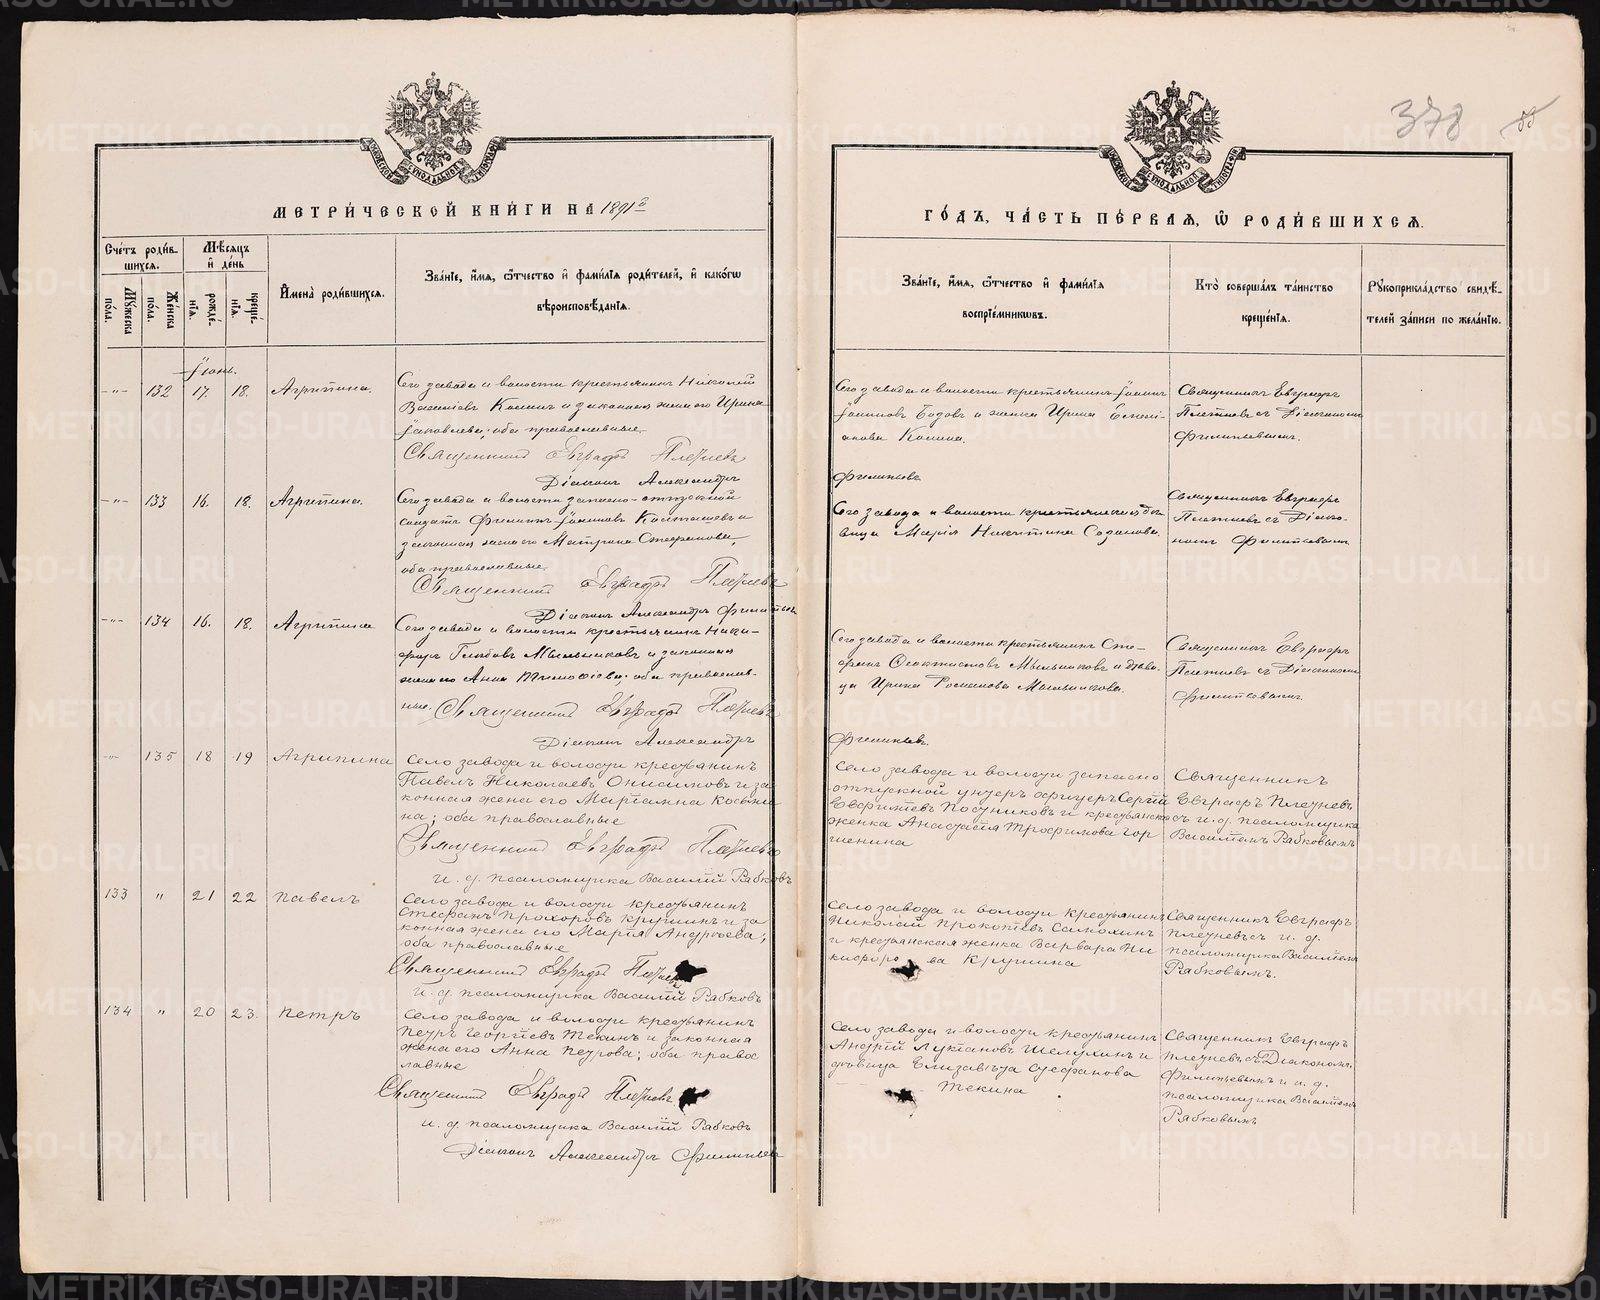 378
МЕТРИЧЕСКОЙ КНИГИ НА 1891 й
ГОДЪ, ЧАСТЬ ПЕРВАЯ, Ѡ РОДИВШИХСЯ.
Счетъ родившихся.
Мужеска пола.
Женска пола.
Мѣсяцъ и день
рожденія.
крещенія.
Имена родившихся.
Званіе, имя, ѿчество и фамилія родителей, и какогѡ
вѣроисповѣданія.
Званіе, имя, ѿчество и фамилія
воспріемникѡвъ.
Кто совершалъ таинство
крещенія.
Рукоприкладство свидѣ-
телей записи по желанію.
Іюнь.
-"- 132 17. 18. Агрипина.
Сего завода и волости крестьянинъ Николай
Васильевъ Коминъ и законная жена его Ирина
Яковлева; оба православные.
Священникъ Евграфъ Плетневъ
Діаконъ Александръ
Филипьевъ
Сего завода и волости крестьянинъ
и жена Ирина
Комина.
Священникъ Евграфъ
Плетневъ съ Діакономъ
Филипьевымъ.
-"- 133 16. 18. Агрипина.
Сего завода и волости запасно-отпускной
солдатъ Филиппъ и
законная жена его Матрона Стефанова,
оба православные.
Священникъ Евграфъ Плетневъ
Діаконъ Александръ Филипьевъ
Сего завода и волости крестьянская дѣ-
вица Марія Никитина
Священникъ Евграфъ
Плетневъ съ Діако-
номъ Филипьевымъ
-"- 134 16. 18. Агрипина
Сего завода и волости крестьянинъ Ники-
форъ Глѣбовъ Мыльниковъ и законная
жена его Анна Тимофеева; оба православ-
ные. Священникъ Евграфъ Плетневъ
Діаконъ Александръ
Филипьевъ.
Сего завода и волости крестьянинъ Сте-
фанъ Феоктистовъ Мыльниковъ и дѣви-
ца Ирина Романова Мыльникова.
Священникъ Евграфъ
Плетневъ съ Діакономъ
Филипьевымъ
-"- 135 18 19 Агрипина
Село завода и волости крестьянинъ
Павелъ Николаевъ Онисимовъ и за
конная жена его Маріамна Косьми
на; оба православные
Священникъ Евграфъ Плетневъ
и. д. псаломщика Василій Рябковъ
Село завода и волости запасно
отпускной унтеръ офицеръ Сергій
Евфиміевъ Постниковъ и крестьянская
женка Анастасія Трофимова Гор
шенина
Священникъ
Евграфъ Плетневъ
съ и. д. псаломщика
Василіемъ Рябковымъ
133 " 21 22 Павелъ
Село завода и волости крестьянинъ
Стефанъ Прохоровъ Крушинъ и за
конная жена его Марія Андреева;
оба православные
Священникъ Евграфъ Плетневъ
и. д. псаломщика Василій Рябковъ
Село завода и волости крестьянинъ
Николай Прокопіевъ Самохинъ
и крестьянская женка Варвара Ни
кифорова Крушина
Священникъ Евграфъ
Плетневъ съ и. д.
псаломщика Василіемъ
Рябковымъ.
134 " 20 23. Петръ
Село завода и волости крестьянинъ
Петръ Георгіевъ Текинъ и законная
жена его Анна Петрова; оба право
славные
Священникъ Евграфъ Плетневъ
и. д. псаломщика Василій Рябковъ
Діаконъ Александръ Филипьевъ
Село завода и волости крестьянинъ
Андрей Лукіановъ Шелухинъ и
дѣвица Елизавѣта Стефанова
Текина
Священникъ Евграфъ
Плетневъ съ Діакономъ
Филипьевымъ и и. д.
псаломщика Василіемъ
Рябковымъ
METRIKI.GASO-URAL.RU